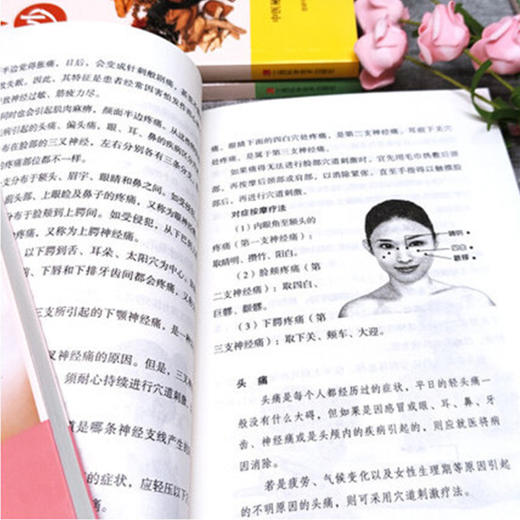 中医
半边觉得胀痛，日后，会变成针刺般剧痛，
失眠。因此，其特征是患者经常因害怕发作
致神经过敏、筋疲力尽。
同时也会引起肌肉麻痹，颜面半边疼痛，
引起的头痛、偏头痛，眼、耳、鼻的疾病
布在脸部的三叉神经，左右分别各有三条分支，
疼痛部位都不一样。
支分布于额头、眉宇、眼睛和鼻之间。如受
前头部、上眼睑及鼻子的疼痛，又称为眼神经
分布于脸颊到上腭间。如受侵犯，从下
疼痛，又称为上腭神经痛。
以下腭到舌、耳朵、太阳穴为中心，
、下唇和下排牙齿间都会疼痛，又
三支所引起的下颚神经痛，是一种
叉神经痛的原因。但是，三叉
须耐心持续进行穴道刺激，
道是哪条神经支线产生的
的症状，应轻压以下
痛。
痛，眼睛下面的四白穴处疼痛，是第二支神经痛。耳前下关穴
处疼痛，是属于第三支神经痛。
如果痛得无法进行脸部穴道刺激时，宜先用毛巾热敷后颈
部，再按摩后颈部或肩部，以消除紧张，直至手指得以触摸脸
部，再进行穴道刺激。
对症按摩疗法
（1）内眼角至额头的
疼痛（第一支神经痛）：
取睛明、攒竹、阳白。
（2）脸颊疼痛（第
二支神经痛）：取四白、
巨髎、颧髎。
（3）下腭疼痛（第
三支神经痛）：取下关、颊车、大迎。
睛明
四白
颧髎
头 痛
头痛是每个人都经历过的症状，平日的轻头痛一
般没有什么大碍，但如果是因感冒或眼、耳、鼻、牙
齿、神经痛或是头颅内的疾病引起的，则应就医将病
因消除。
若是疲劳、气候变化以及女性生理期等原因引起
的不明原因的头痛，则可采用穴道刺激疗法。